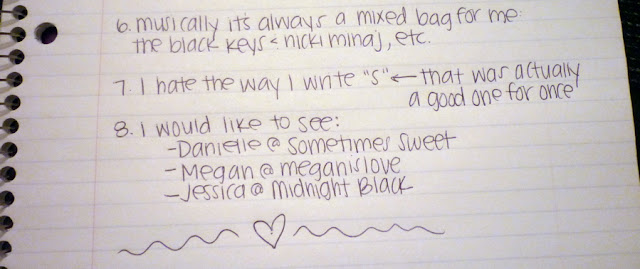 6. musically it's always a mixed bag for me:
the black keys < nicki minaj, etc.
7. I hate the way I write "S" ← that was actually
a good one for once
8. I would like to see:
- Danielle @ sometimes sweet
- Megan @ meganislove
- Jessica @ Midnight Black